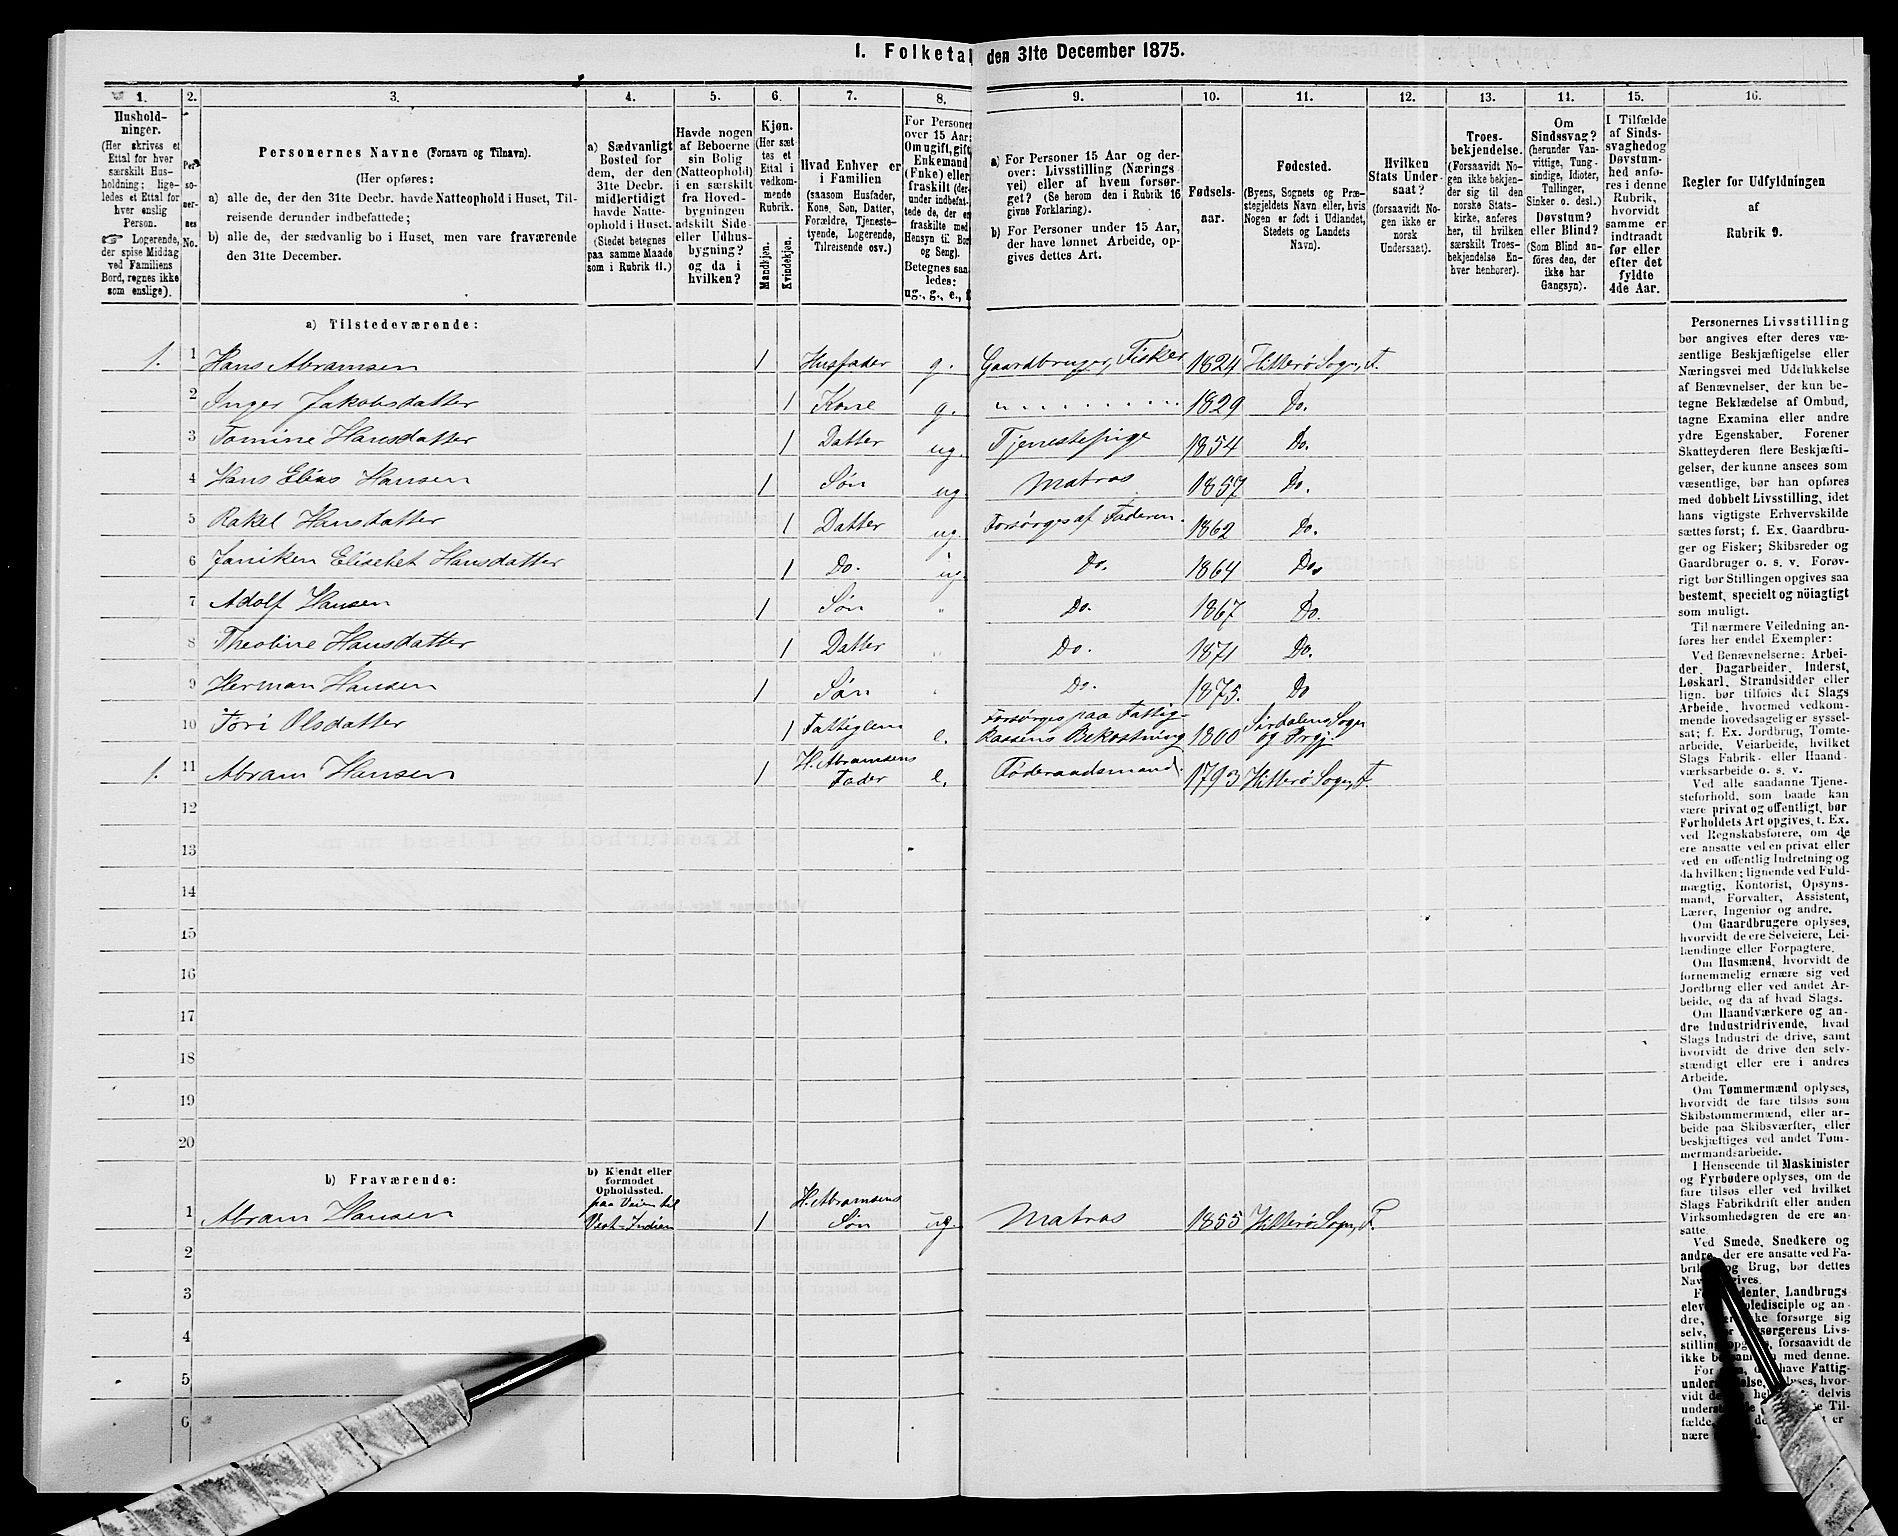 I. Folketal den 31te December 1875.
1. 2. 3. 4. 5. 6. 7. 8. 9. 10. 11. 12. 13. 14. 15. 16.
Husholdninger.
(Her skrives et
Ettal for hver
særskilt Husholdning; ligeledes et Ettal for
hver enslig
Person.
☞ Logerende,
der spise Middag
ved Familiens
Bord, regnes ikke
som enslige).
Personernes No.
Personernes Navne (Fornavn og Tilnavn).
(Her opføres:
a) alle de, der den 31te Decbr. havde Natteophold i Huset, Tilreisende derunder indbefattede;
b) alle de, der sædvanlig bo i Huset, men vare fraværende
den 31te December.
a) Sædvanligt
Bosted for
dem, der den
31te Decbr.
midlertidigt
havde Natteophold i Huset.
(Stedet betegnes
paa samme Maade
som i Rubrik 11.)
Havde nogen
af Beboerne
sin Bolig
(Natteophold)
i en særskilt
fra Hovedbygningen
adskilt Side-
eller Udhusbygning?
og da i
hvilken?
Kjøn.
(Her sættes et
Ettal i
vedkommende
Rubrik.
Mandkjøn.
Kvindekjøn.
Hvad Enhver er
i Familien
(saasom Husfader,
Kone, Søn, Datter,
Forældre, Tjenestetyende, Logerende,
Tilreisende osv.)
For Personer
over 15 Aar:
Om ugift, gift,
Enkemand
(Enke) eller
fraskilt
Betegnes saaledes:
ug., g., e., f.
a) For Personer 15 Aar og derover: Livsstilling (Næringsvei) eller af hvem forsørget? (Se herom den i Rubrik 16
givne Forklaring).
b) For Personer under 15 Aar,
der have lønnet Arbeide, opgives dettes Art.
Fødselsaar.
Fødested.
(Byens, Sognets og Præstegjeldets Navn eller, hvis
Nogen er født i Udlandet,
Stedets og Landets
Navn).
Hvilken
Stats Undersaat?
(forsaavidt Nogen ikke er
norsk
Undersaat).
Troesbekjendelse.
(Forsaavidt Nogen ikke bekjender sig til den
norske Statskirke, anføres
her, til hvilken
særskilt Troesbekjendelse Enhver henhører).
Om
Sindssvag?
(herunder Vanvittige, Tungsindige, Idioter,
Tullinger,
Sinker o. desl.)
Døvstum?
eller Blind?
(Som Blind anføres den, der
ikke har
Gangsyn).
I Tilfælde
af Sindssvaghed og
Døvstumhed anføres i denne
Rubrik,
hvorvidt
samme er
indtraadt
før eller
efter det
fyldte
4de Aar.
Regler for Udfyldningen
af
Rubrik 9.
a) Tilstedeværende:
1. 1 Hans Abramsen 1 Husfader g. Gaardbruger, Fisker 1824 Hitterø Sogn, F.
2 Inger Jakobsdatter 1 Kone g. 1829 Do.
3 Tomine Hansdatter 1 Datter ug. Tjenestepige 1854 Do.
4 Hans Elias Hansen 1 Søn ug. Matros 1857 Do.
5 Rakel Hansdatter 1 Datter ug. Forsørges af Faderen. 1862 Do.
6 Janiken Elisebet Hansdatter 1 Do. ug. Do. 1864 Do.
7 Adolf Hansen 1 Søn " Do. 1867 Do.
8 Theoline Hansdatter 1 Datter " Do. 1871 Do.
9 Herman Hansen 1 Søn " Do. 1875. Do
10 Tori Olsdatter 1 Fattiglem e. Forsørges paa Fattigkassens Bekostning 1800 Sirdalens Sogn og Prgj
1. 11 Abram Hansen 1 H. Abramsens Fader e. Føderaadsmand. 1793 Hitterø Sogn, F.
12
13
14
15
16
17
18
19
20
b) Fraværende:
b) Kjendt eller
formodet
Opholdssted.
1 Abram Hansen paa Veien til Vest-Indien 1 H. Abramsens Søn ug. Matros 1855 Hitterø Sogn, F.
2
3
4
5
6
Personernes Livsstilling
bør angives efter deres væsentlige Beskjæftigelse eller
Næringsvei med Udelukkelse
af Benævnelser, der kun betegne Beklædelse af Ombud,
tagne Examina eller andre
ydre Egenskaber. Forener
Skatteyderen flere Beskjæftigelser, der kunne ansees som
væsentlige, bør han opføres
med dobbelt Livsstilling, idet
hans vigtigste Erhvervskilde
sættes først; f. Ex. Gaardbruger og Fisker; Skibsreder og
Gaardbruger o. s. v. Forøvrigt bør Stillingen opgives saa
bestemt, specielt og nöiagtigt
som muligt.
Til nærmere Veiledning anføres her endel Exempler:
Ved Benævnelserne: Arbeider, Dagarbeider, Inderst,
Løskarl, Strandsidder eller
lign. bør tilføies det Slags
Arbeide, hvormed vedkommende hovedsagelig er sysselsat; f. Ex. Jordbrug, Tomtearbeide, Veiarbeide, hvilket
Slags Fabrik- eller Haandværksarbeide o. s. v.
Ved alle saadanne Tjenesteforhold, som baade kan
være privat og offentligt, bør
Forholdets Art opgives, t. Ex.
ved Regnskabsførere, om de
ere ansatte ved en privat eller
ved en offentlig Indretning og
da hvilken; lignende ved Fuldmægtig, Kontorist, Opsynsmand, Forvalter, Assistent,
Lærer, Ingeniør og andre.
Om Gaardbrugere oplyses,
hvorvidt de ere Selveiere, Leilændinge eller Forpagtere.
Om Husmænd, hvorvidt de
fornemmelig ernære sig ved
Jordbrug eller ved andet Arbeide, og da af hvad Slags.
Om Haandværkere og andre Industridrivende, hvad
Slags Industri de drive, samt
hvorvidt de drive den selvstændigt eller ere i andres
Arbeide.
Om Tømmermænd oplyses,
hvorvidt de fare tilsøs som
Skibstømmermænd, eller arbeide paa Skibsværfter, eller
beskjæftiges ved andet Tømmermandsarbeide.
I Henseende til Maskinister
og Fyrbødere oplyses, om de
fare tilsøs eller ved hvilket
Slags Fabrikdrift eller anden
Virksomhedsgren de ere ansatte
Ved Smede, Snedkere og
andre, der ere ansatte ved
og Brug, bør dettes
Landbrugs
og an-
ikke forsørge sig
forsaavidt de
med denne.
have Fattig-